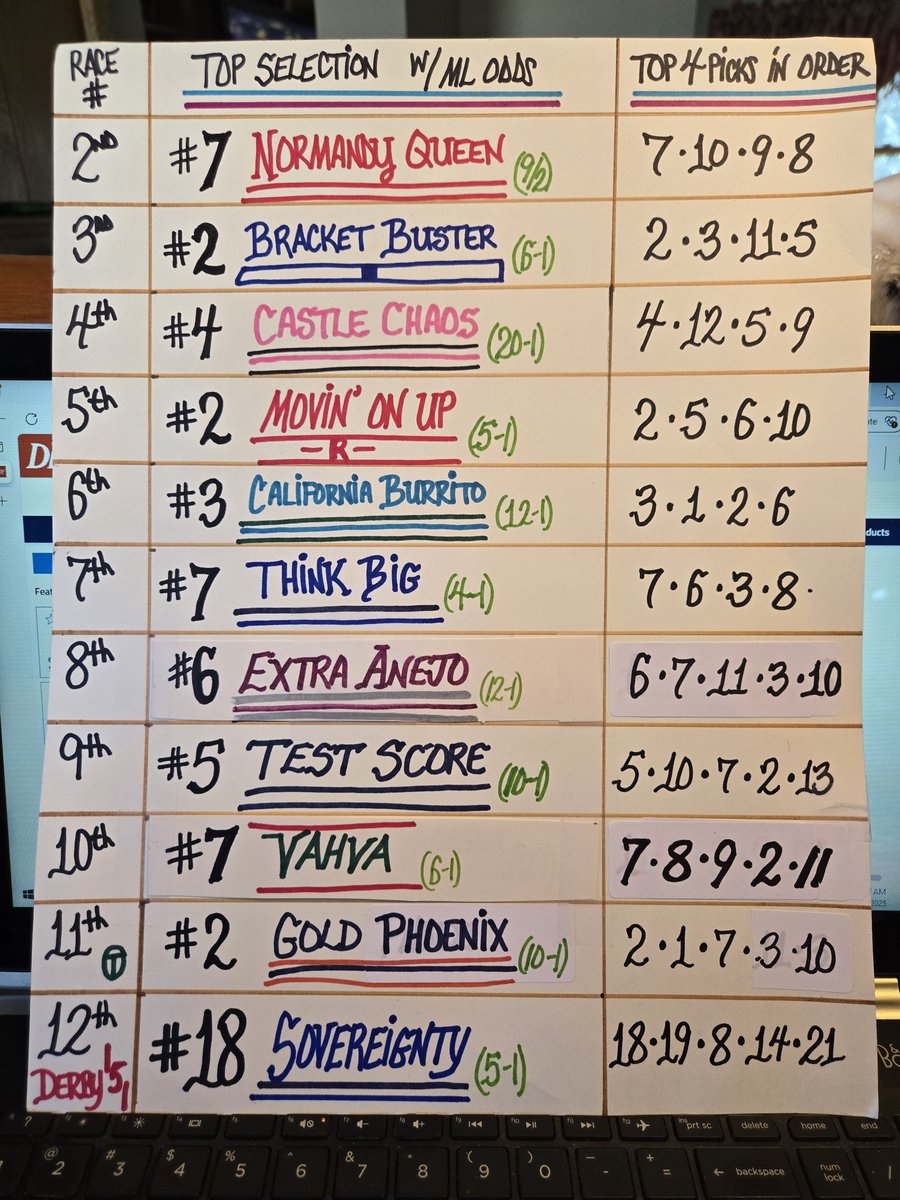 RACE # TOP SELECTION W/ ML ODDS TOP 4 PICKS IN ORDER
2ND #7 NORMANDY QUEEN (9/2) 7·10·9·8
3RD #2 BRACKET BUSTER (6-1) 2·3·11·5
4th #4 CASTLE CHAOS (20-1) 4·12·5·9
5th #2 MOViN' ON UP (5-1) 2·5·6·10
-R-
6th #3 CALiFORNiA BURRiTO (12-1) 3·1·2·6
7th #7 THiNK BiG (4-1) 7·6·3·8·
8th #6 EXTRA AÑEJO (12-1) 6·7·11·3·10
9th #5 TEST SCORE (10-1) 5·10·7·2·13
10th #7 VAHVA (6-1) 7·8·9·2·11
11th T #2 GOLD PHOENiX (10-1) 2·1·7·3·10
12th #18 SOVEREiGNTY (5-1) 18·19·8·14·21
DERBY 151
prt sc delete home end
@ 2 # 3 $ 4 % 5 ^ 6 & 7 * 8 ( 9 ) 0 - + = backspace num lock /